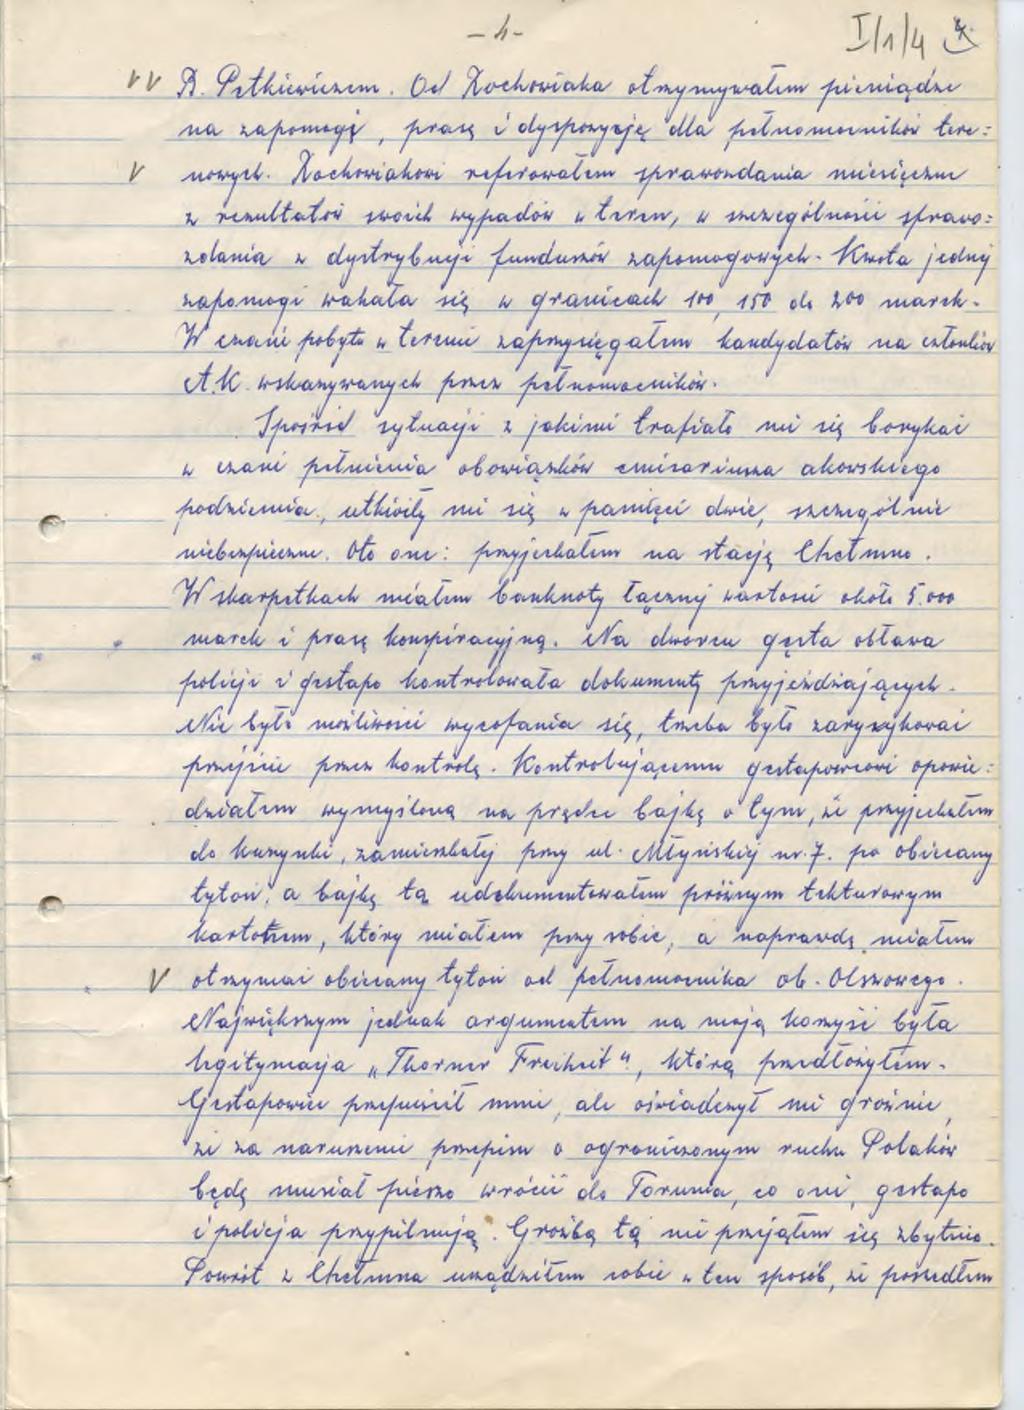 - 4 -
I/1/4
B. Petkiewiczem. Od Żochowiaka otrzymywałem pieniądze
na zapomogi, prasę i dyspozycję dla pełnomocników tere=
nowych. Żochowiakowi referowałem sprawozdania miesięczne
z rezultatów swoich wypadów w teren, w szczególności sprawo=
zdania z dystrybucji funduszów zapomogowych. Kwota jednej
zapomogi wahała się w granicach 100, 150 do 200 marek.
W czasie pobytu w terenie zaprzysięgałem kandydatów na członków
A.K. wskazywanych przez pełnomocników.
Spośród sytuacji z jakimi trafiało mi się borykać
w czasie pełnienia obowiązków emisariusza akowskiego
podziemia, utkwiły mi się w pamięci dwie, szczególnie
niebezpieczne. Oto one: przyjechałem na stację Chełmno.
W skarpetkach miałem banknoty łącznej wartości około 5.000
marek i prasę konspiracyjną. Na dworcu gęsta obława
policji i gestapo kontrolowała dokumenty przyjeżdżających.
Nie było możliwości wycofania się, trzeba było zaryzykować
przejście przez kontrolę. Kontrolującemu gestapowcowi opowie=
działem wymyśloną na prędce bajkę o tym, że przyjechałem
do kuzynki, zamieszkałej przy ul. Młyńskiej nr. 7. po obiecany
tytoń, a bajkę tą udokumentowałem próżnym tekturowym
kartonem, który miałem przy sobie, a naprawdę miałem
otrzymać obiecany tytoń od pełnomocnika ob. Olszowego.
Największym jednak argumentem na moją korzyść była
legitymacja „Thorner Freiheit", którą przedłożyłem.
Gestapowiec przepuścił mnie, ale oświadczył mi groźnie,
że za naruszenie przepisu o ograniczonym ruchu Polaków
będę musiał pieszo wrócić do Torunia, co oni, gestapo
i policja przypilnują. Groźbą tą nie przejąłem się zbytnio.
Powrót z Chełmna urządziłem sobie w ten sposób, że poszedłem